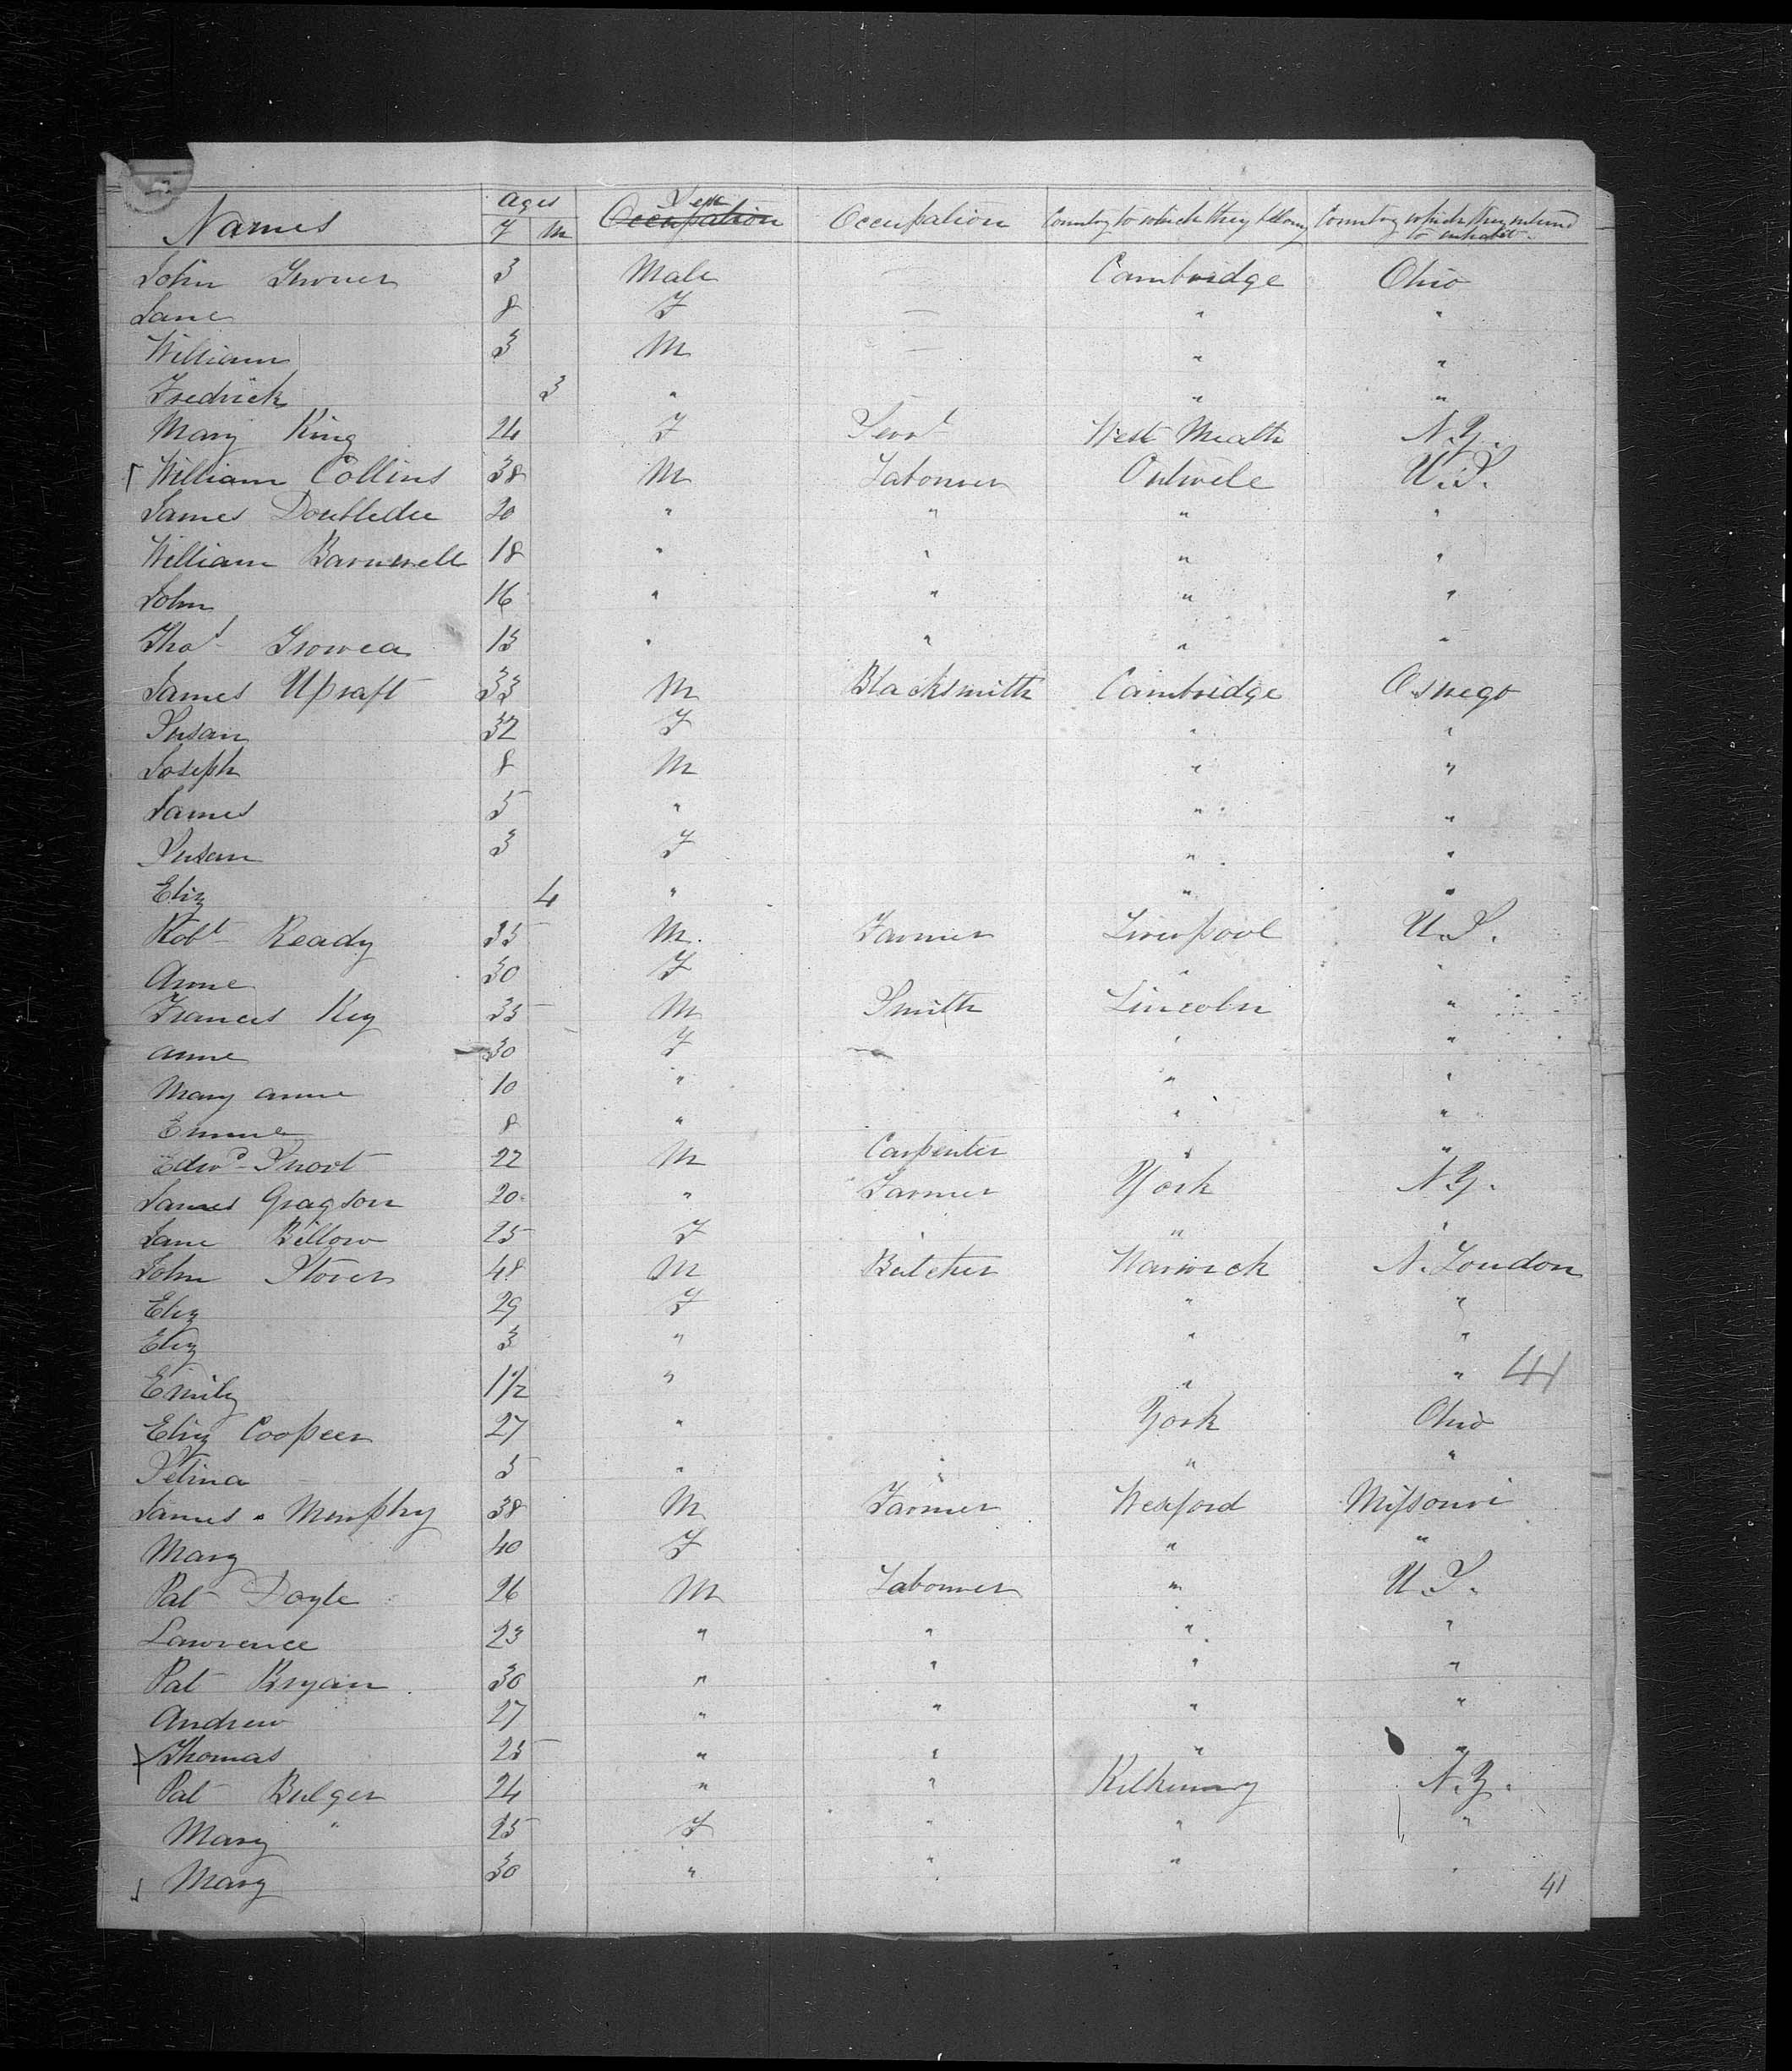 Names Ages Sex Occupation Occupation Country to which they belong Country which they intend to inhabit
Y M
John 3 Male — Cambridge Ohio
Jane 8 F — " "
William 3 M — " "
Fredrick 3 " " "
Mary King 24 F Serv^t West Meath N.Y.
William Collins 38 M Labourer U.S.
James Doubledee 20 " " " "
William Barnwell 18 " " " "
John 16 " " " "
Tho^s 15 " " " "
James Upraft 33 M Blacksmith Cambridge Oswego
Susan 32 F " "
Joseph 8 M " "
James 5 " " "
Susan 3 F " "
Eliz 4 " " "
Rob^t Ready 35 M. Farmer Liverpool U.S.
Anne 30 F " "
Frances Key 35 M Smith Lincoln "
Anne 30 F — " "
Mary Anne 10 " " "
8 " " "
Edw^d 22 M Carpenter " "
James Gragson 20 " Farmer York N.Y.
Jane Billow 25 F " " "
John Stover 48 M Butcher Warwick N. London
Eliz 29 F " "
Eliz 3 " " "
Emily 1½ " " " 41
Eliz Cooper 27 " York Ohio
Selina 5 " " " "
James Murphy 38 M Farmer Wexford Missouri
Mary 40 F " "
Pat Doyle 26 M Labourer " U.S.
Lawrence 23 " " " "
Pat Bryan 30 " " " "
Andrew 27 " " " "
Thomas 25 " " " "
Pat Bulger 24 " " Kilkenny N.Y.
Mary " 25 F " " "
Mary 30 " " " "
41